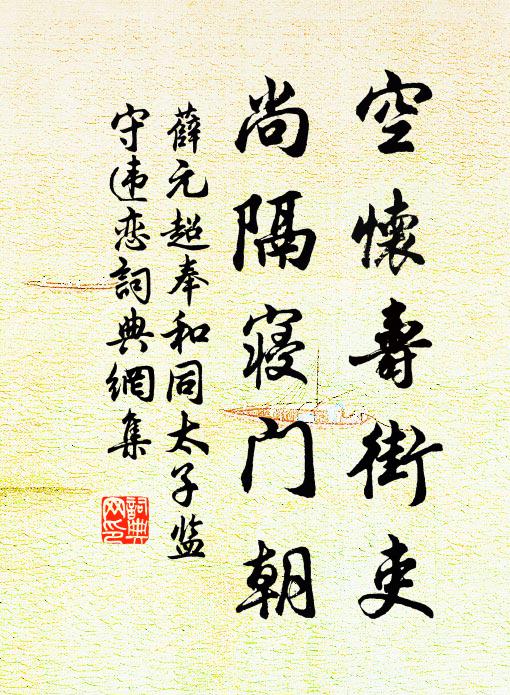 空懷壽街吏
尚隔寢門朝
薛元超奉和同太子监
守违恋詞典網集
詞典
网印